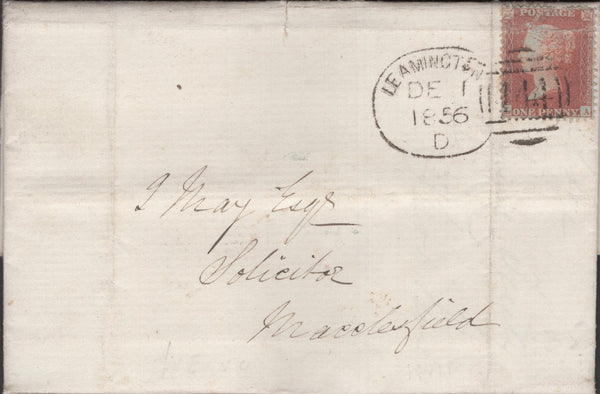 POSTAGE
LEAMINGTON
DE 1
1856
D
ONE PENNY A
J May Esqr
Solicitor
Macclesfield